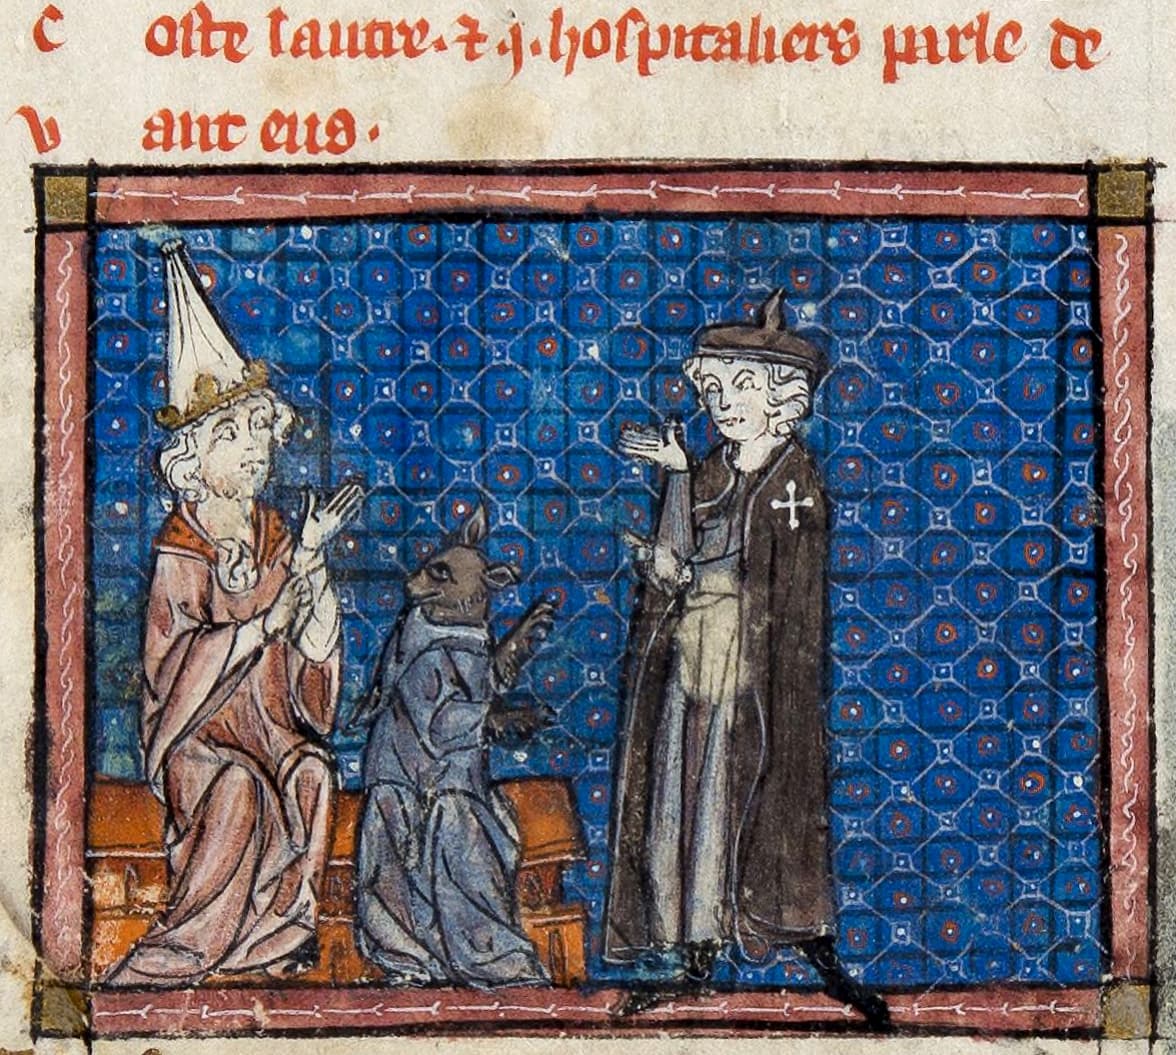 c oste lautre. ⁊ .j. hospitaliers parle de
v ant eus.